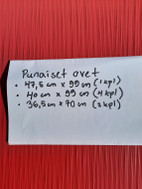 Punaiset ovet
• 47,5 cm x 99 cm (1 kpl)
• 40 cm x 99 cm (4 kpl)
• 36,5 cm x 70 cm (2 kpl)